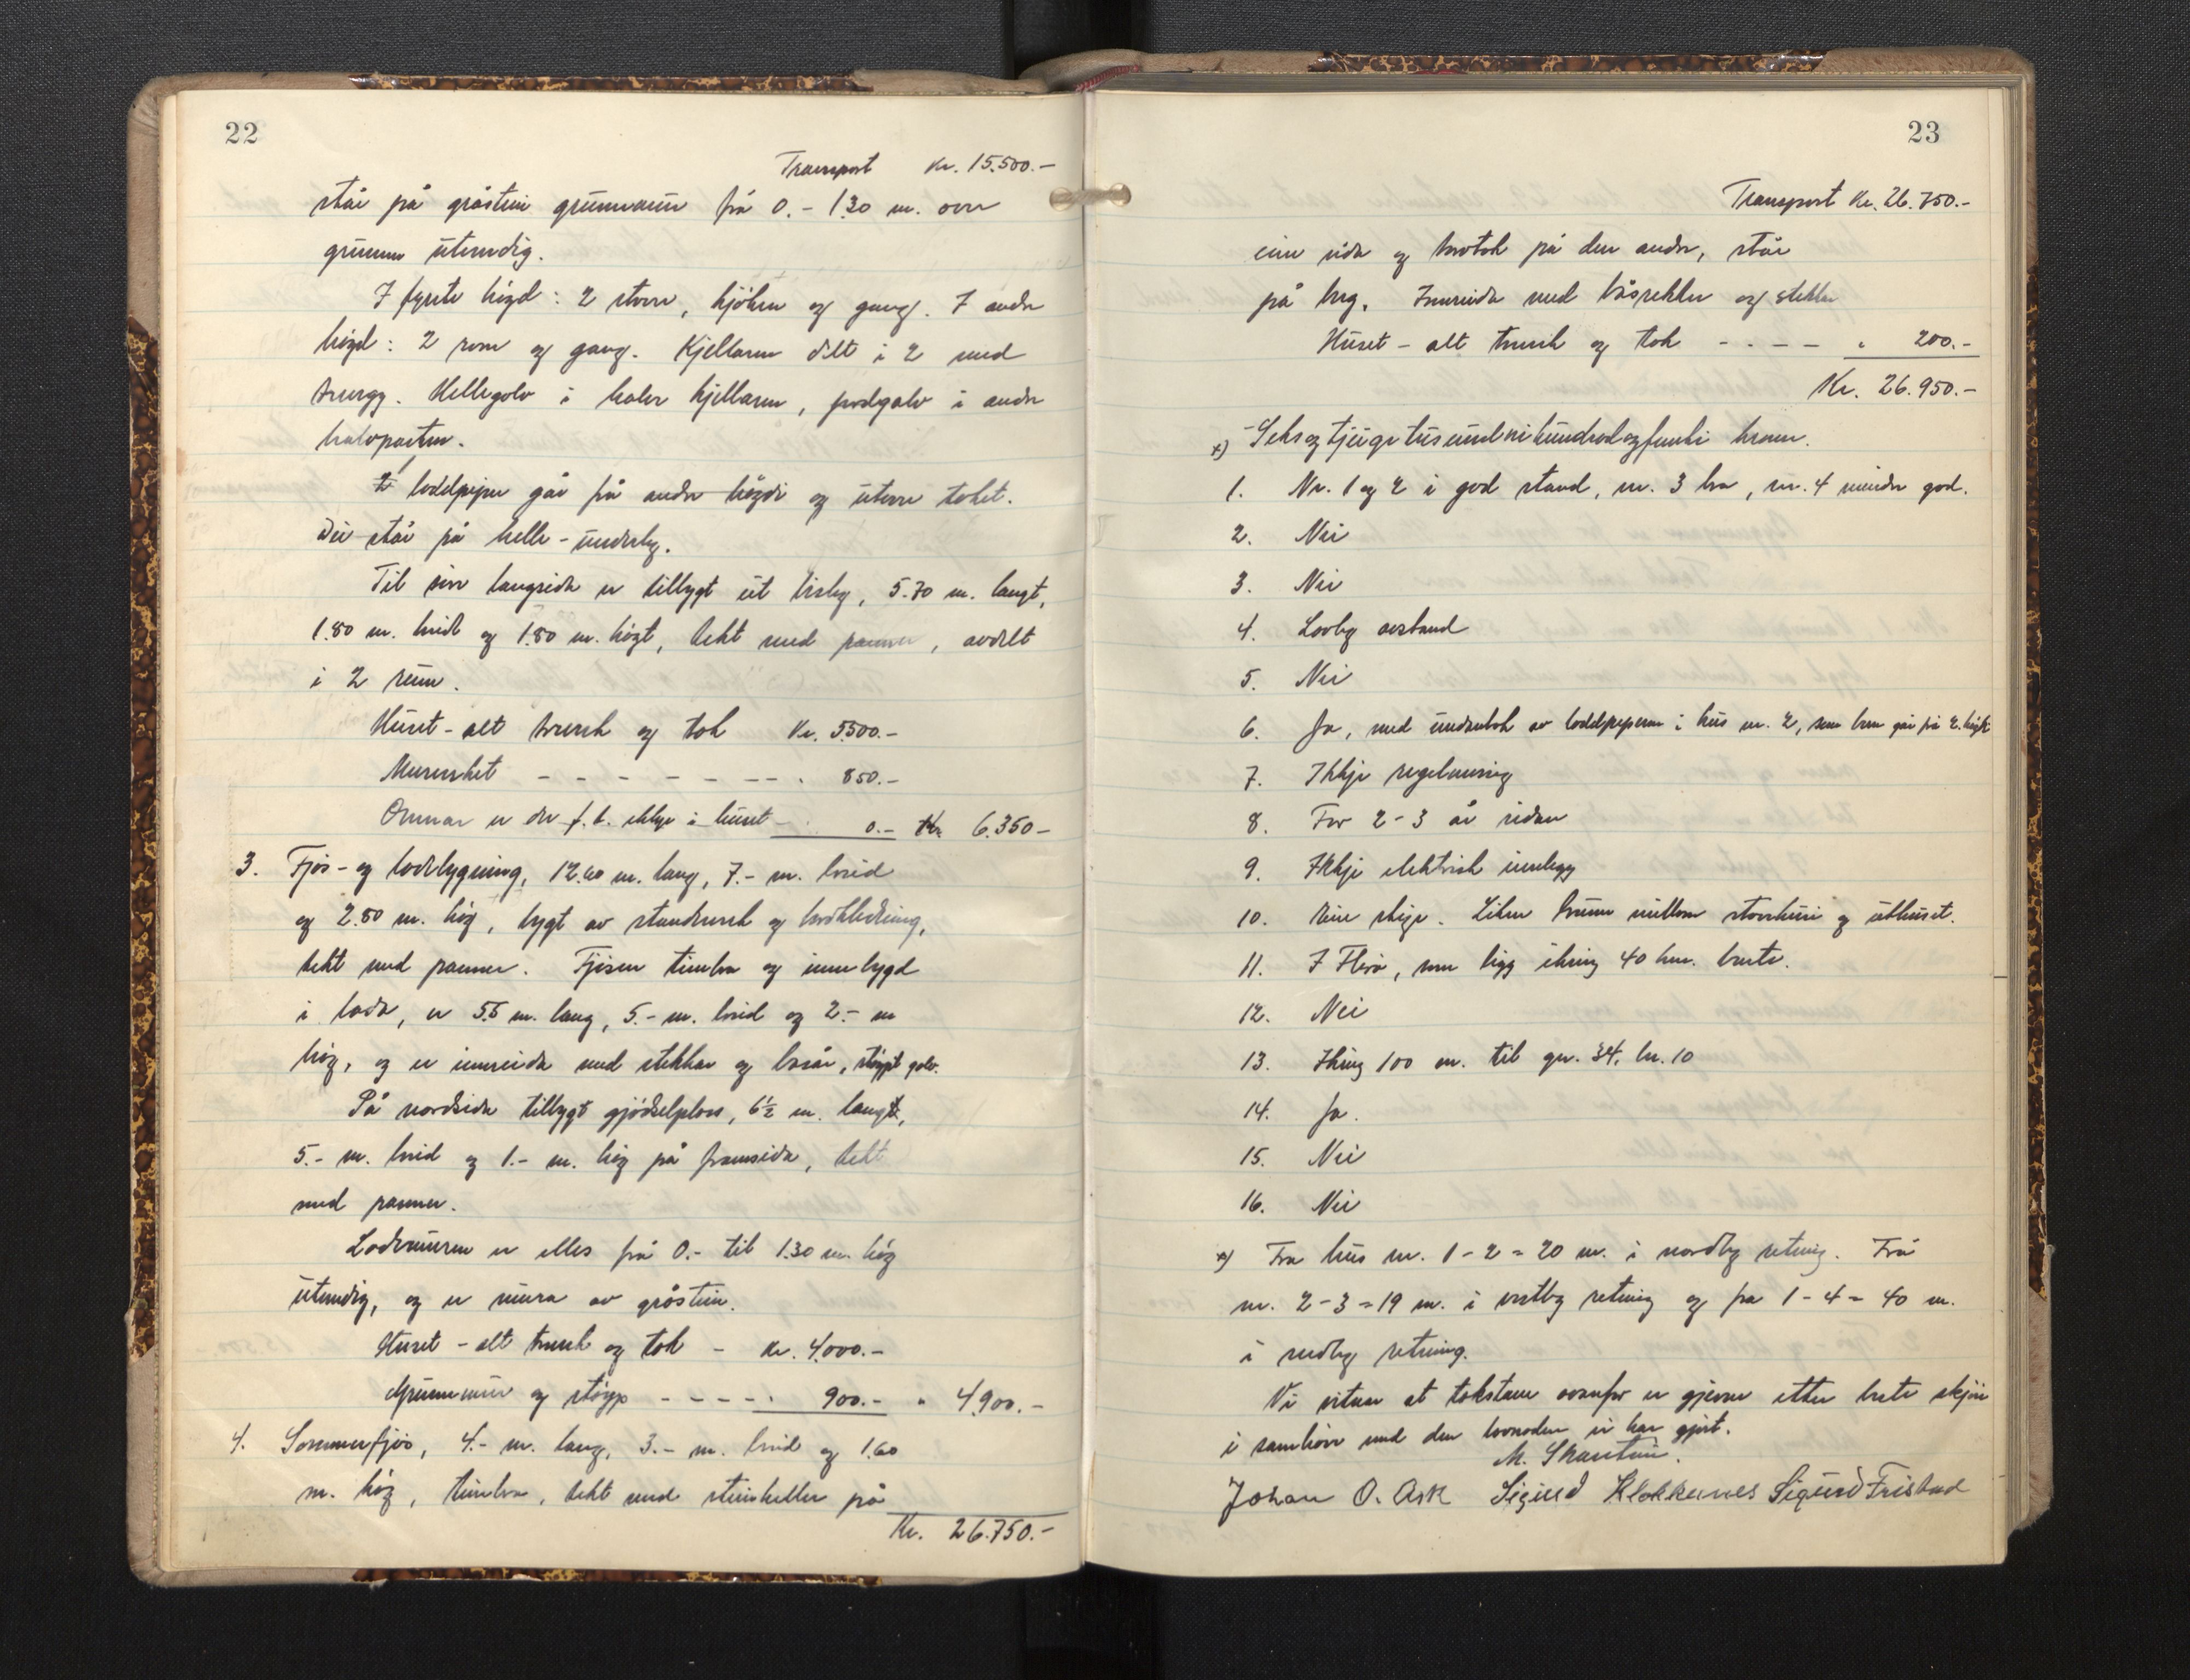 22
Transport Kr. 15.500.-
står på gråstein grunnmur frå 0.- 1.30 m. over
grunnen utvendig.
I fyrste högd: 2 stover, kjöken og gang. I andre
högd: 2 rom og gang. Kjellaren delt i 2 med
trevegg. Hellegolv i halve kjellaren, jordgolv i andre
halvparten.
1 loddpipe går frå andre högdi og utover taket.
Dei står på helle-underlag.
Til eine langsida er tilbygt eit bislag, 5.70 m. langt,
1.80 m. breidt og 1.80 m. högt, tekt med panner, avdelt
i 2 rum.
Huset - alt treverk og tak Kr. 5.500.-
Murverket - - - - - - - - " 850.-
Omnar er der f. t. ikkje i huset - " 0.- Kr. 6.350-
3. Fjös- og lödebygning, 12.60 m. lang, 7.- m. breid
og 2.80 m. hög, bygt av standverk og bordkledning,
tekt med panner. Fjösen timbra og innebygd
i lada, er 5.5 m. lang, 5.- m. breid og 2.- m
hög, og er innreida med stekkar og båsar, stöypt golv.
På nordsida tilbygt gjödselplass, 6½ m. langt,
5.- m. breid og 1.- m. hög på framsida, tekt
med panner.
Lödemuren er elles frå 0.- til 1.30 m. hög
utvendig, og er mura av gråstein.
Huset - alt treverk og tak - Kr. 4.000.-
Grunnmur og stöyp - - - - " 900.- " 4.900.-
4. Sommerfjös, 4.- m. lang, 3.- m. breid og 1.60
m. hög, timbra, tekt med steinheller på
Kr. 26.750.-
23
Transport Kr. 26.750.-
eine sida og torvtak på den andre, står
på berg. Innreida med båsrekker og stekker
Huset - alt treverk og tak - - - - " 200.-
Kr. 26.950.-
x) Seksogtjuge tusund nihundradogfemti kroner.
1. Nr. 1 og 2 i god stand, nr. 3 bra, nr. 4 mindre god.
2. Nei
3. Nei
4. Lovleg avstand
5. Nei
6. Ja, med undantak av loddpiperne i hus nr. 2, som bare går frå 2. högde
7. Ikkje regelmessig
8. For 2-3 år sidan
9. Ikkje elektrisk innlegg
10. Eine stige. Liten brunn millom stovehusi og uthuset.
11. I Florö, som ligg ikring 40 km. borte.
12. Nei
13. Ikring 100 m. til gn. 34, br. 10
14. Ja.
15. Nei
16. Nei
x) Fra hus nr. 1-2 = 20 m. i nordleg retning. Frå
nr. 2-3 = 19 m. i vestleg retning og fra 1-4 = 40 m.
i sudleg retning.
Vi vitnar at takstane ovanfor er gjevne etter beste skjön
i samhöve med den lovnaden vi har gjort.
M. Skarstein.
Johan O. Ask Sigurd Klokkernes Sigurd Fristad